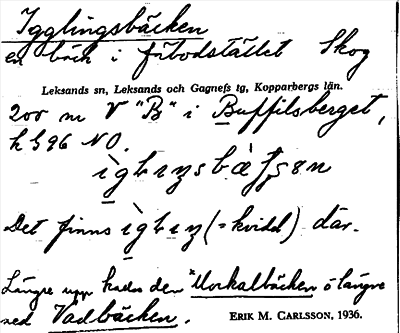 Igglingsbäcken
en bäck i fäbodstället Skog
Leksands sn, Leksands och Gagnefs tg, Kopparbergs län.
200 m V "B" i Buffilsberget,
h 596 NO.
Det finns (= kvidd) där.
Längre upp kallas den "Morkalbäcken o längre
ned Vadbäcken.
ERIK M. CARLSSON, 1936.